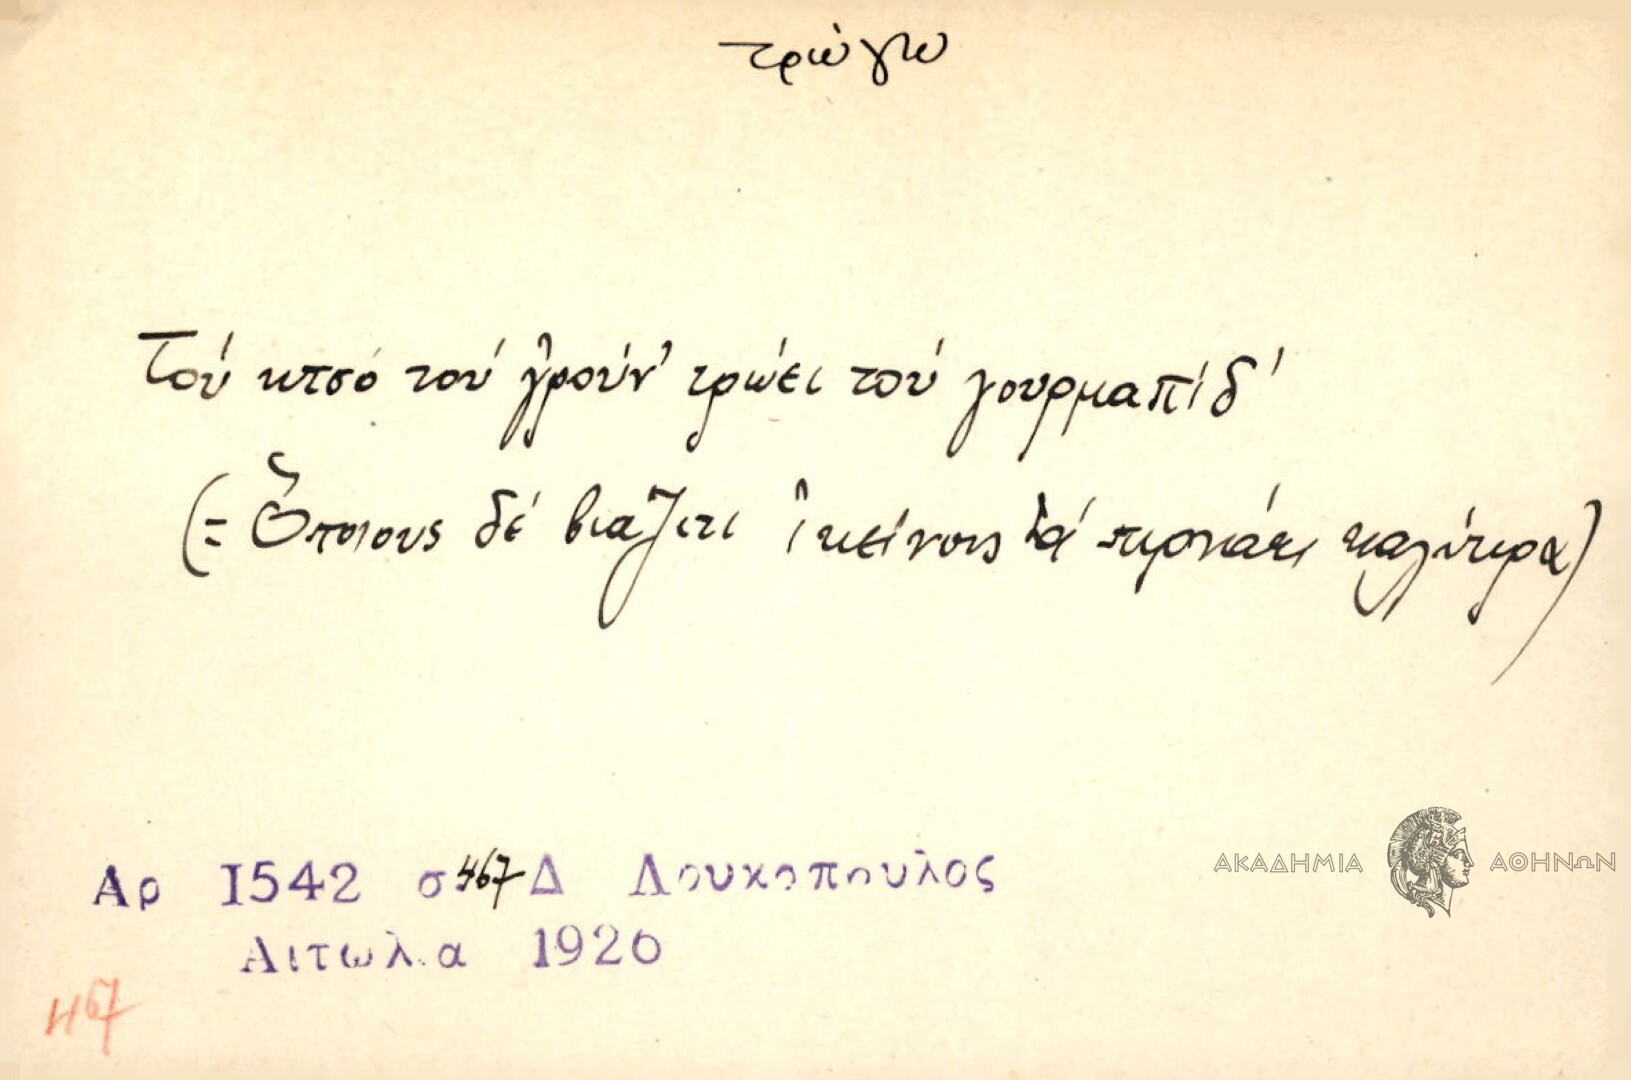 τρώγω
Τού κτσό τού γρούν' τρώει τού γουρμαπίδ'
(= Όποιους δέ βιάζιτι ικείνους τά πιρνάει καλύτιρα)
Αρ 1542 σ 467 Δ Λουκοπουλος
Αιτωλ.α 1920
467
ΑΚΑΔΗΜΙΑ ΑΘΗΝΩΝ